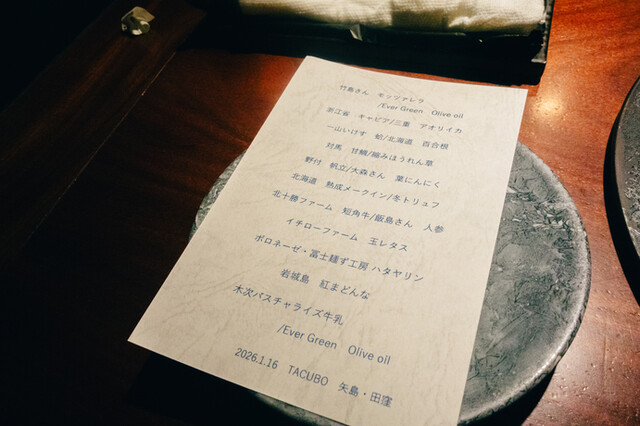 竹島さん　モッツァレラ
/Ever Green　Olive oil
浙江省　キャビア/三重　アオリイカ
一山いけす　鮑/北海道　百合根
対馬　甘鯛/縮みほうれん草
野付　帆立/大森さん　葉にんにく
北海道　熟成メークイン/冬トリュフ
北十勝ファーム　短角牛/飯島さん　人参
イチローファーム　玉レタス
ボロネーゼ・冨士麺ず工房 ハタヤリン
岩城島　紅まどんな
木次パスチャライズ牛乳
/Ever Green　Olive oil
2026.1.16　TACUBO　矢島・田窪